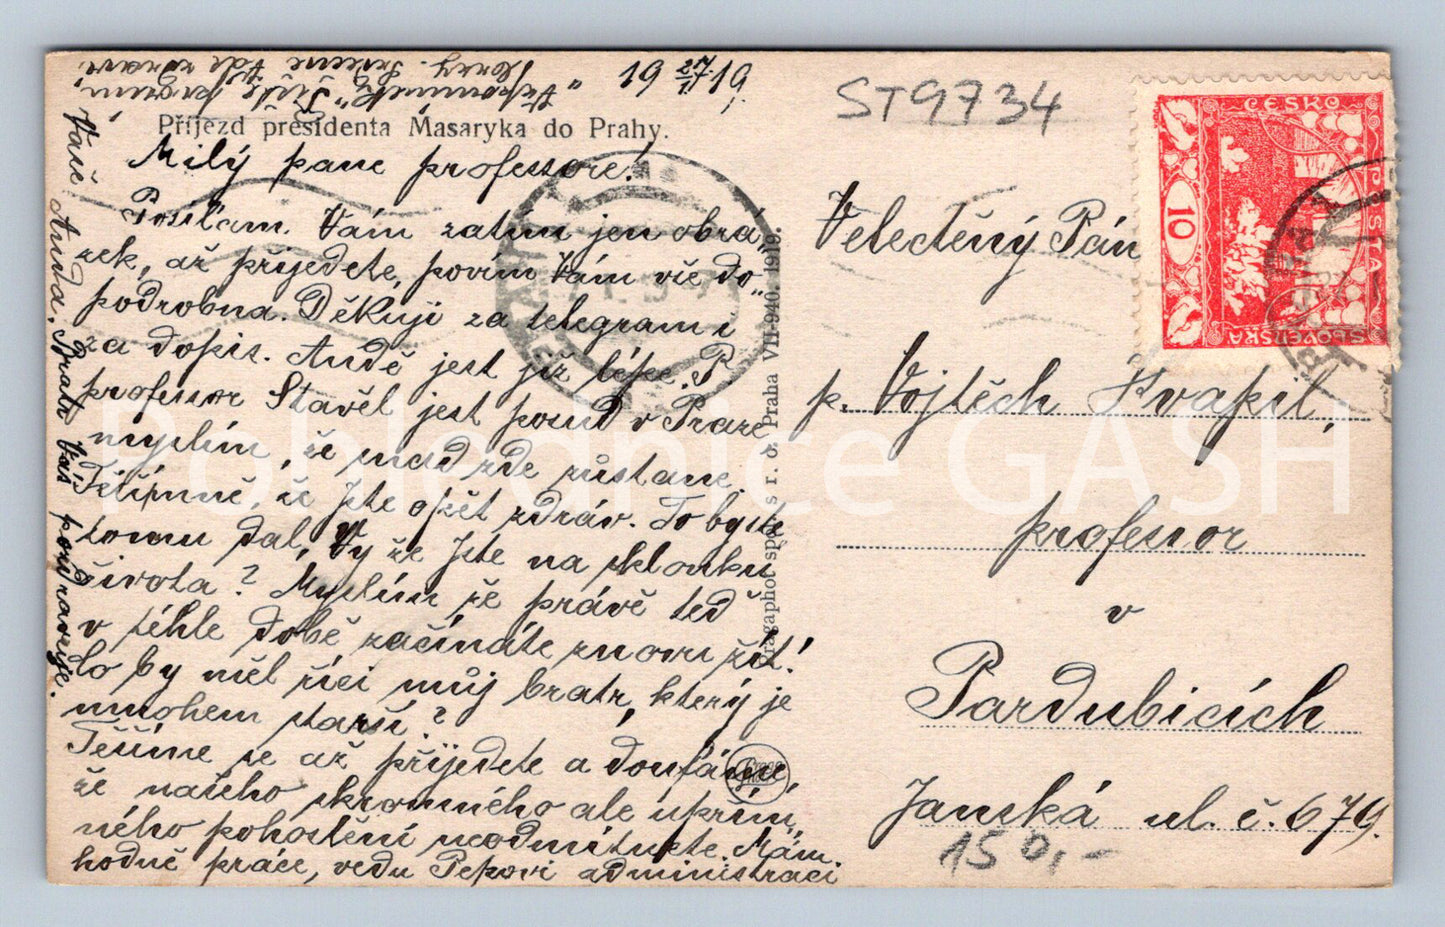 19 17/XII 19
ST9734
Příjezd presidenta Masaryka do Prahy.
Milý pane professore!
Posílám Vám zatím jen obrá
zek, až přijedete, povím Vám vše do"
podrobna. Děkuji za telegram i
za dopis. Andě jest již lépe. P.
professor Stavěl jest posud v Praze
myslím, že snad zde zůstane.
Těšípmně, že Jste opět zdráv. To byste
tomu dal, Vy že Jste na sklonku
života? Myslím že právě teď
v téhle době začínáte znovu žít!
Co by měl říci můj bratr, který je
mnohem starší?
Těšíme se až přijedete a doufáme,
že našeho skromného ale upřím,
ného pohostění neodmítnete. Mám.
hodně práce, vedu Pepovi administraci
"Vzpomínek" Píše
Vaše Anda. Bratr Vás pozdravuje.
Velectěný Pán
p. Vojtěch Kvapil,
professor
v
Pardubicích
Janská ul. č. 679.
150,-
Pragaphot spol. s r. o. Praha VIII-940. 1919.
POŠTA
ČESKO
SLOVENSKÁ
10
Pohlednice GASH